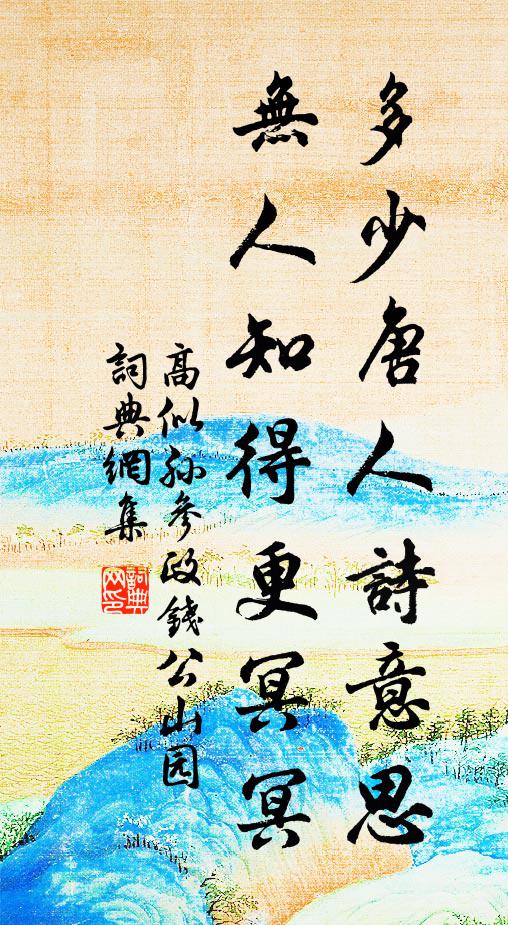 多少唐人詩意思
無人知得更冥冥
高似孙參政錢公山园
詞典網集
詞典網印